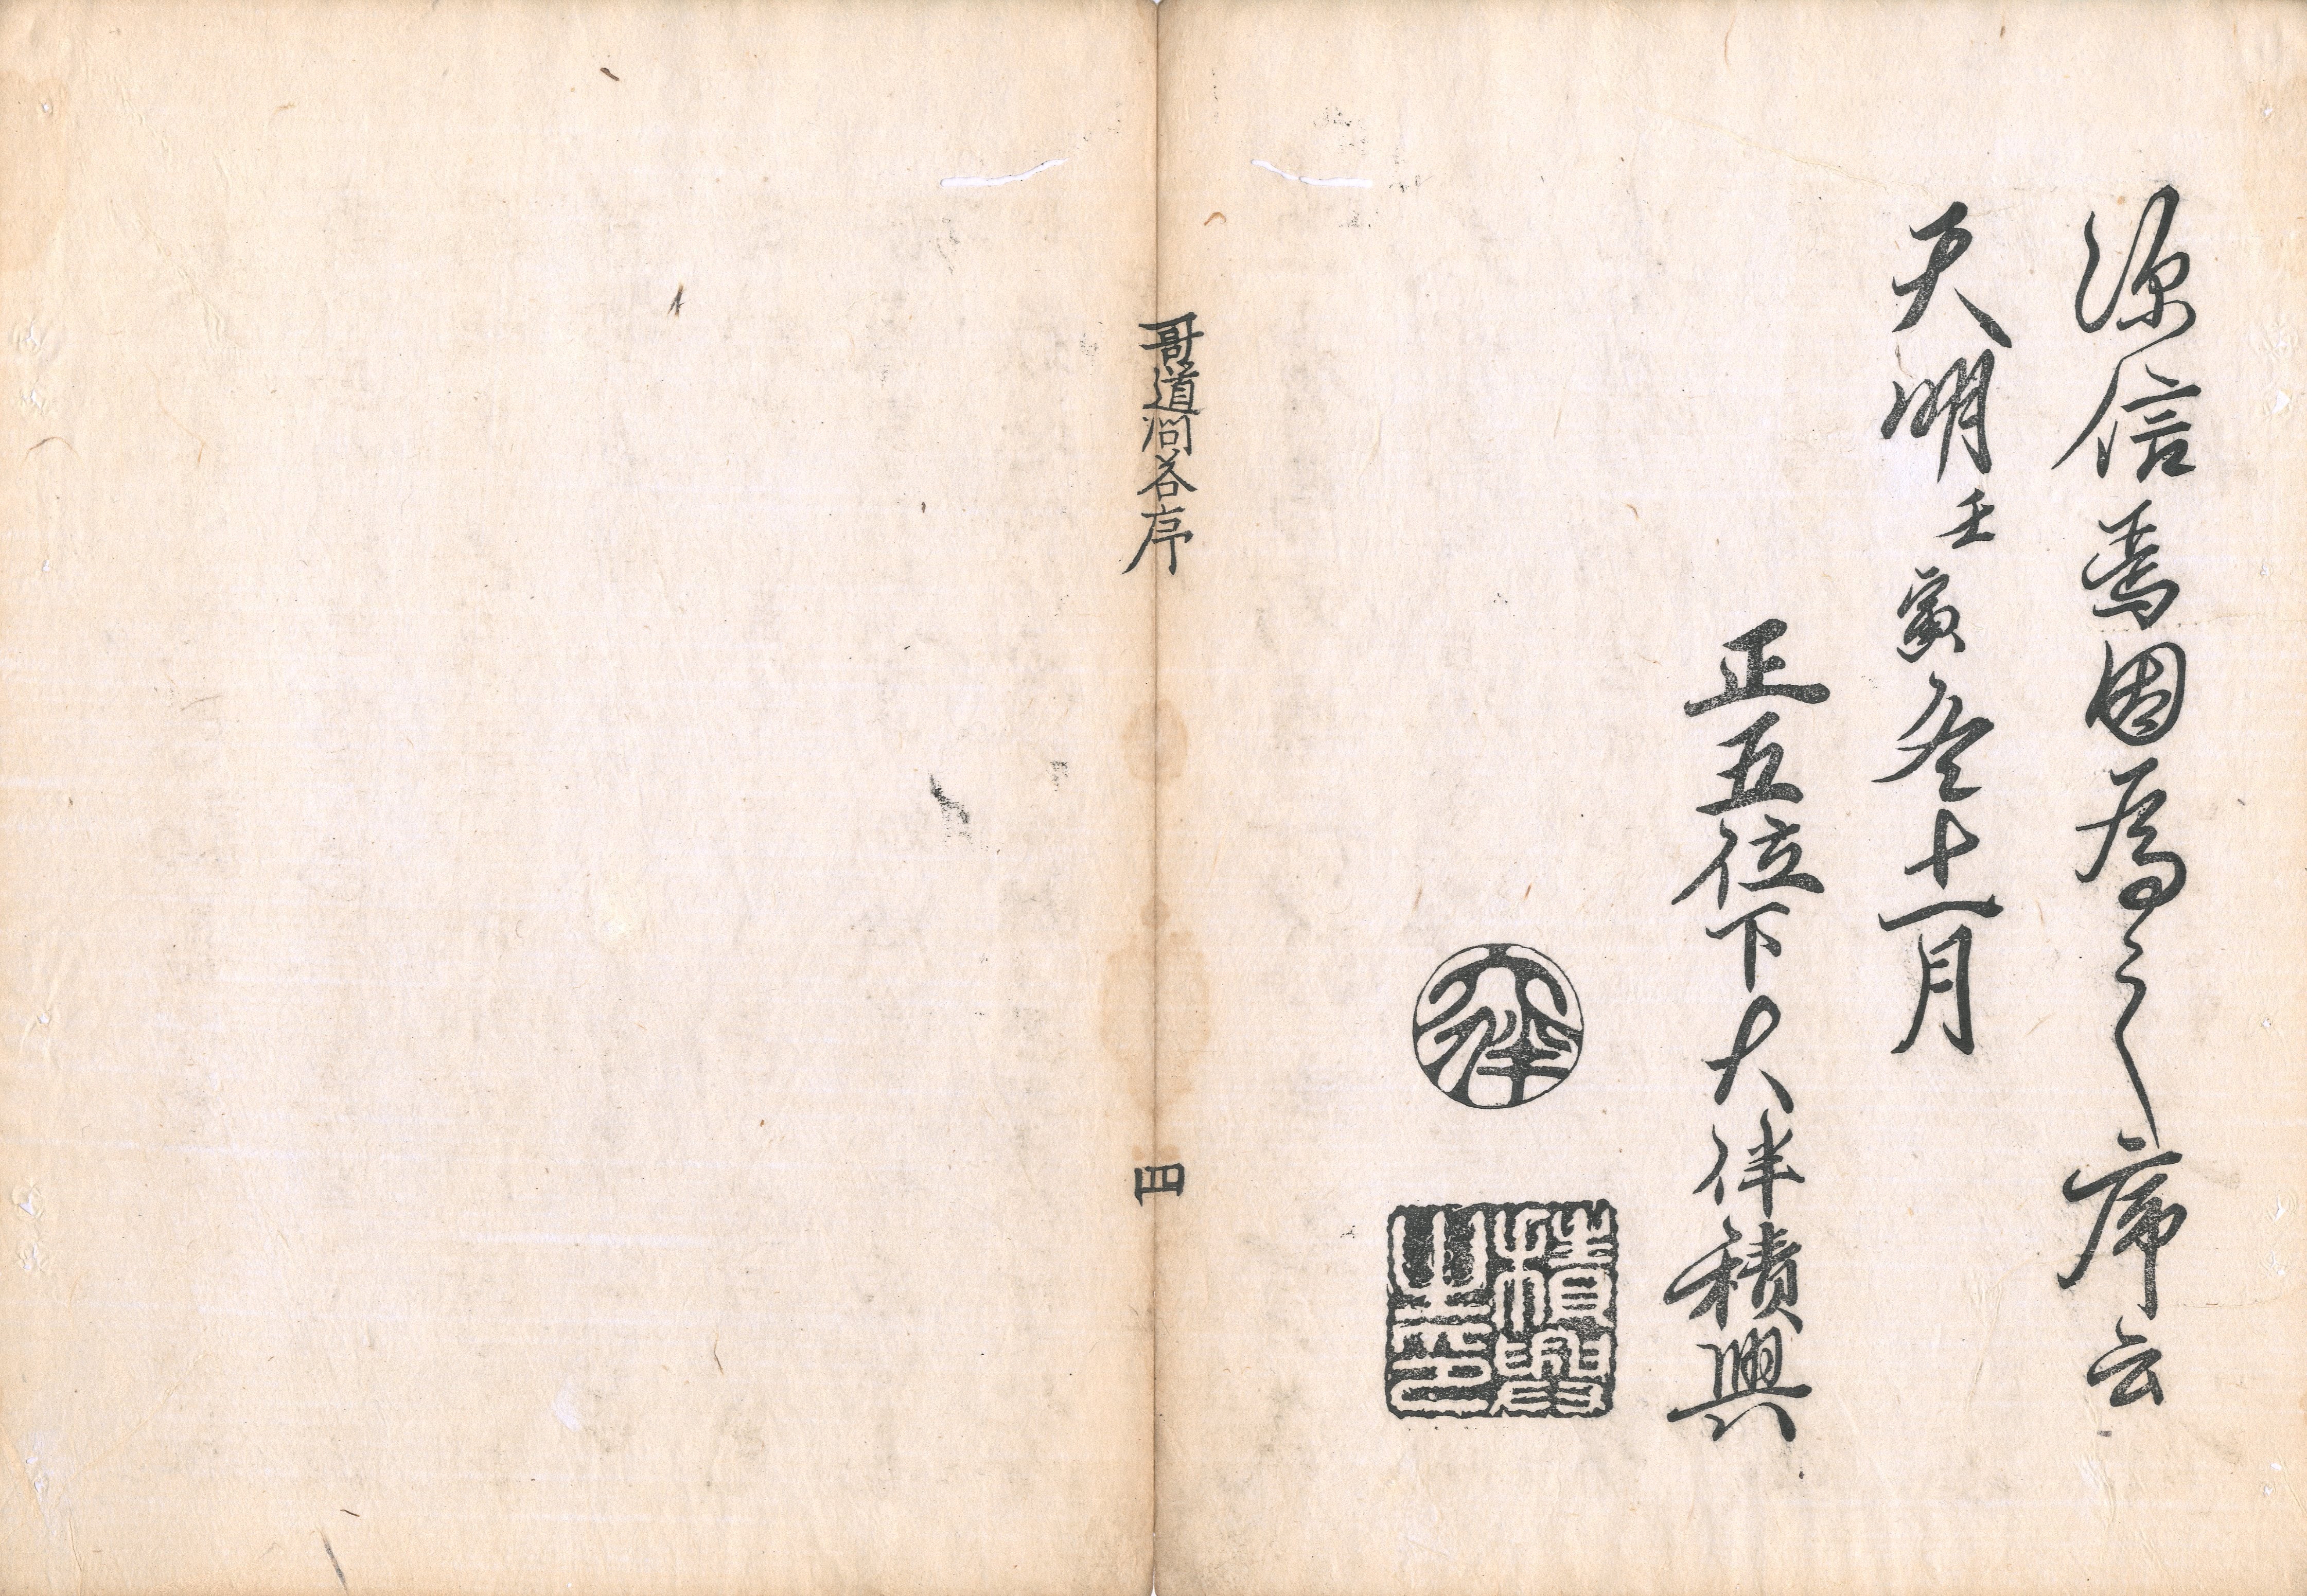 源信焉因為之序云
天明壬寅冬十一月
正五位下大伴積興
大伴
積興
之印
哥道問答序
四